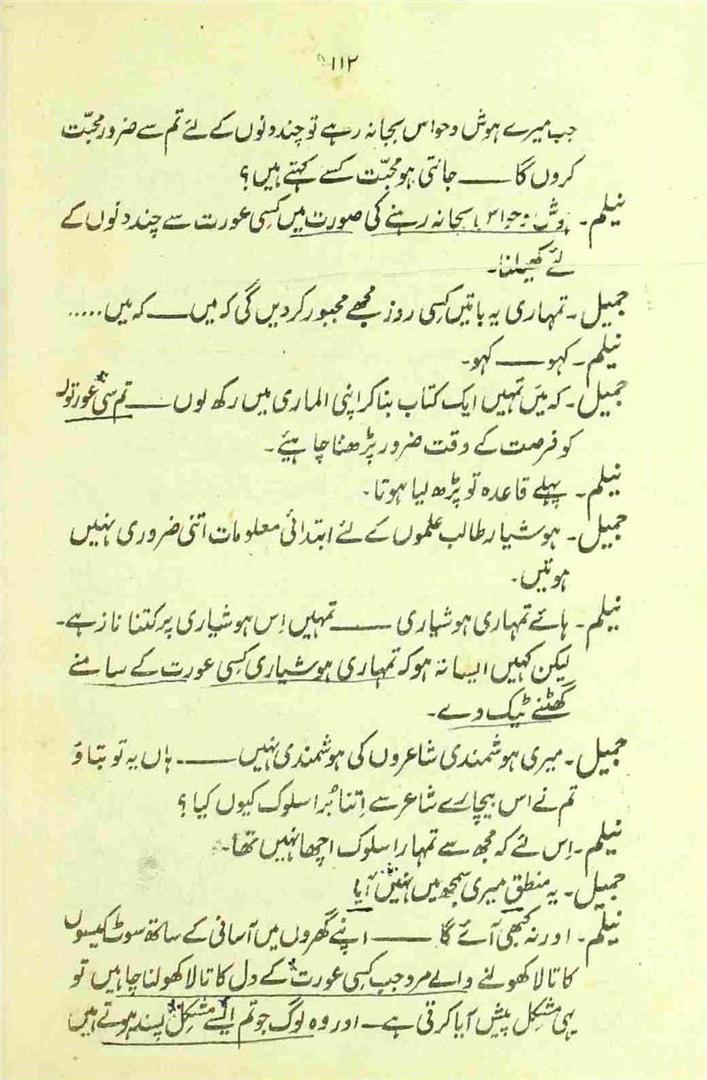 ۱۱۲
جب میرے ہوش و حواس بجا نہ رہے تو چند دنوں کے لئے تم سے ضرور محبّت
کروں گا —— جانتی ہو محبّت کسے کہتے ہیں؟
نیلم۔ ہوش و حواس بجا نہ رہنے کی صورت میں کسی عورت سے چند دنوں کے
لئے کھیلنا۔
جمیل۔ تمہاری یہ باتیں کسی روز مجھے مجبور کر دیں گی کہ میں —— کہ میں .....
نیلم۔ کہو —— کہو۔
جمیل۔ کہ میں تمہیں ایک کتاب بنا کر اپنی الماری میں رکھ لوں —— تم سی عورتوں
کو فرصت کے وقت ضرور پڑھنا چاہئیے۔
نیلم۔ پہلے قاعدہ تو پڑھ لیا ہوتا۔
جمیل۔ ہوشیار طالب علموں کے لئے ابتدائی معلومات اتنی ضروری نہیں
ہوتیں۔
نیلم۔ ہائے تمہاری ہوشیاری —— تمہیں اِس ہوشیاری پر کتنا ناز ہے۔
لیکن کہیں ایسا نہ ہو کہ تمہاری ہوشیاری کسی عورت کے سامنے
گھٹنے ٹیک دے۔
جمیل۔ میری ہوشمندی شاعروں کی ہوشمندی نہیں —— ہاں یہ تو بتاؤ
تم نے اس بیچارے شاعر سے اِتنا بُرا سلوک کیوں کیا؟
نیلم۔ اِس لئے کہ مجھ سے تمہارا سلوک اچھا نہیں تھا۔
جمیل۔ یہ منطق میری سمجھ میں نہیں آیا
نیلم۔ اور نہ کبھی آئے گا —— اپنے گھروں میں آسانی کے ساتھ سوٹ کیسوں
کا تالا کھولنے والے مرد جب کسی عورت کے دل کا تالا کھولنا چاہیں تو
یہی مشکل پیش آیا کرتی ہے۔ اور وہ لوگ جو تم ایسے مشکل پسند ہوتے ہیں